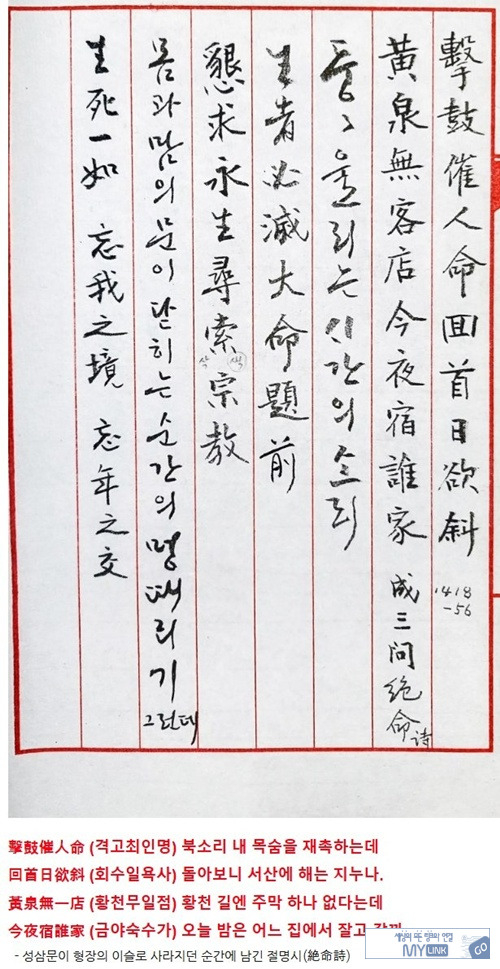 擊鼓催人命 回首日欲斜
1418
-56
黃泉無客店 今夜宿誰家 成三問絶命詩
둥、울리는 시간의 소리
生者必滅大命題前
懇求永生尋索宗教
삭 색
몸과 맘의 문이 닫히는 순간의 멍때리기 그런데
生死一如 忘我之境 忘年之交
擊鼓催人命 (격고최인명) 북소리 내 목숨을 재촉하는데
回首日欲斜 (회수일욕사) 돌아보니 서산에 해는 지누나.
黃泉無一店 (황천무일점) 황천 길엔 주막 하나 없다는데
今夜宿誰家 (금야숙수가) 오늘 밤은 어느 집에서 잘고
- 성삼문이 형장의 이슬로 사라지던 순간에 남긴 절명시(絶命詩)
MYLINK GO